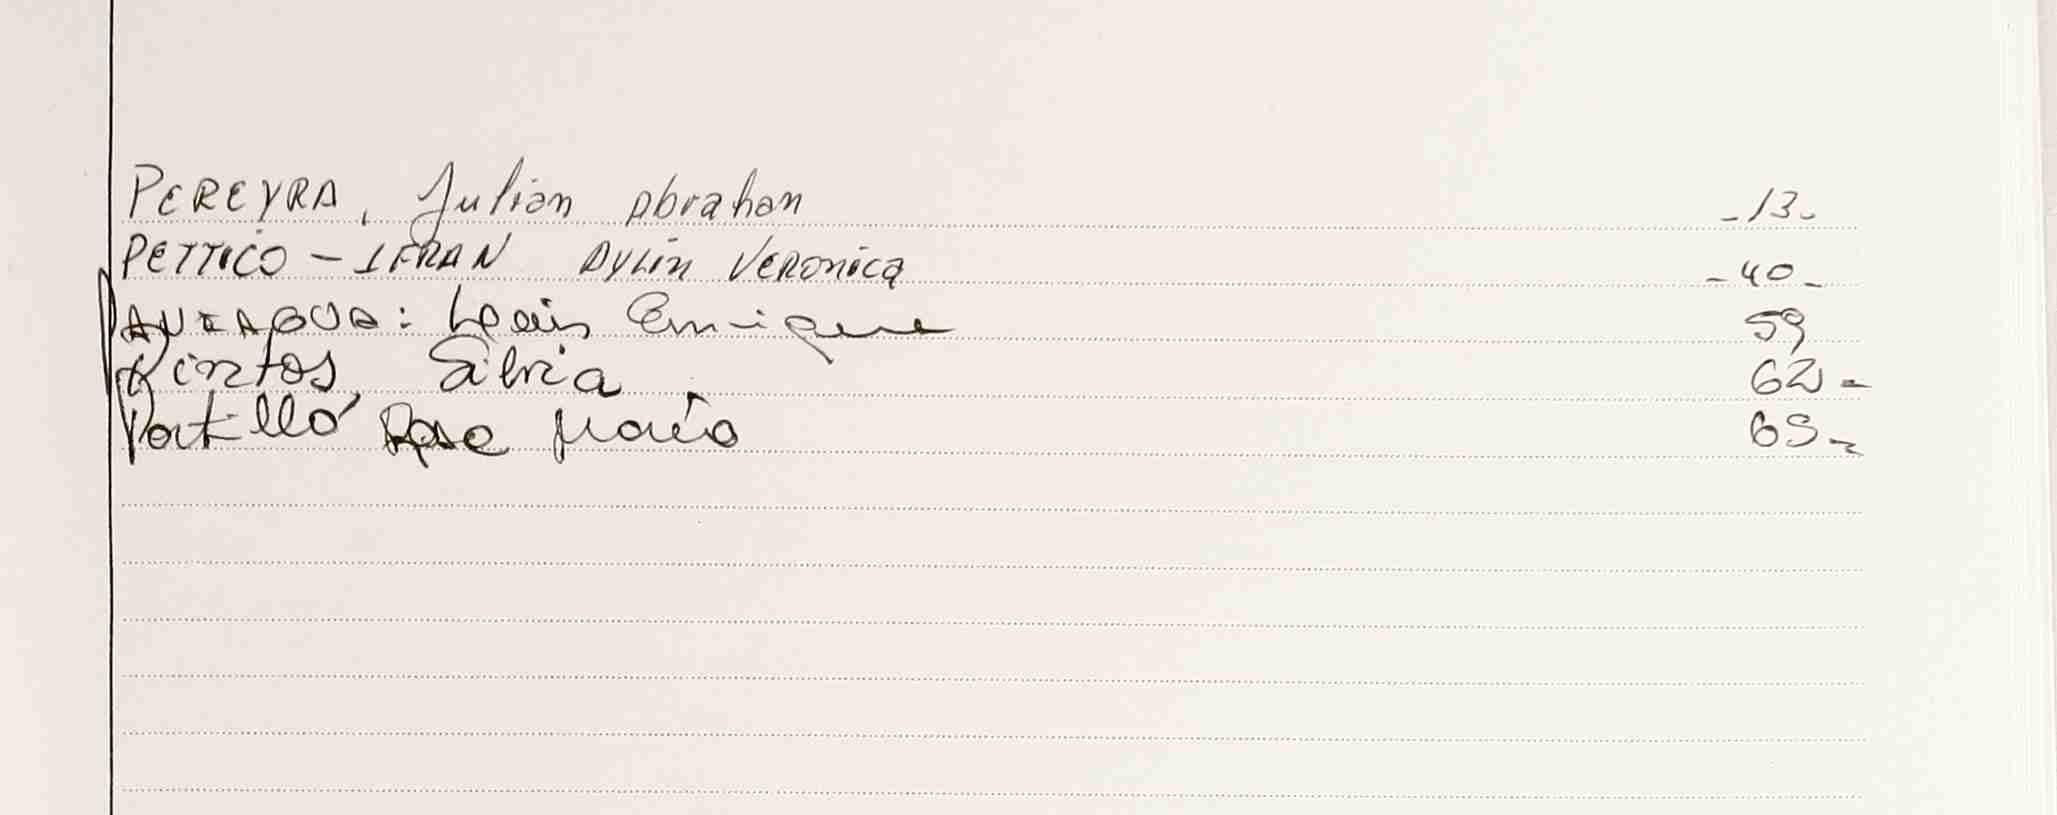 PEREYRA, Julian Abrahan -13-
PETTICO - IFRAN AYLIN VERONICA -40-
Luis Enrique 59
Pintos Silvia 62-
Portillo Rosa María 65-